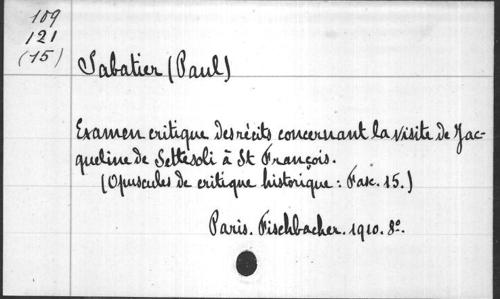 109
121
(15)
Sabatier (Paul)
Examen critique des récits concernant la visite de Jac-
queline de Settesoli à St François.
(Opuscules de critique historique: Fasc. 15.)
Paris. Fischbacher. 1910. 8º.